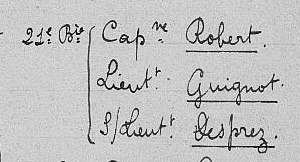 21e. Bie Capne Robert.
Lieutt. Guignot.
S/Lieutt. Desprez.